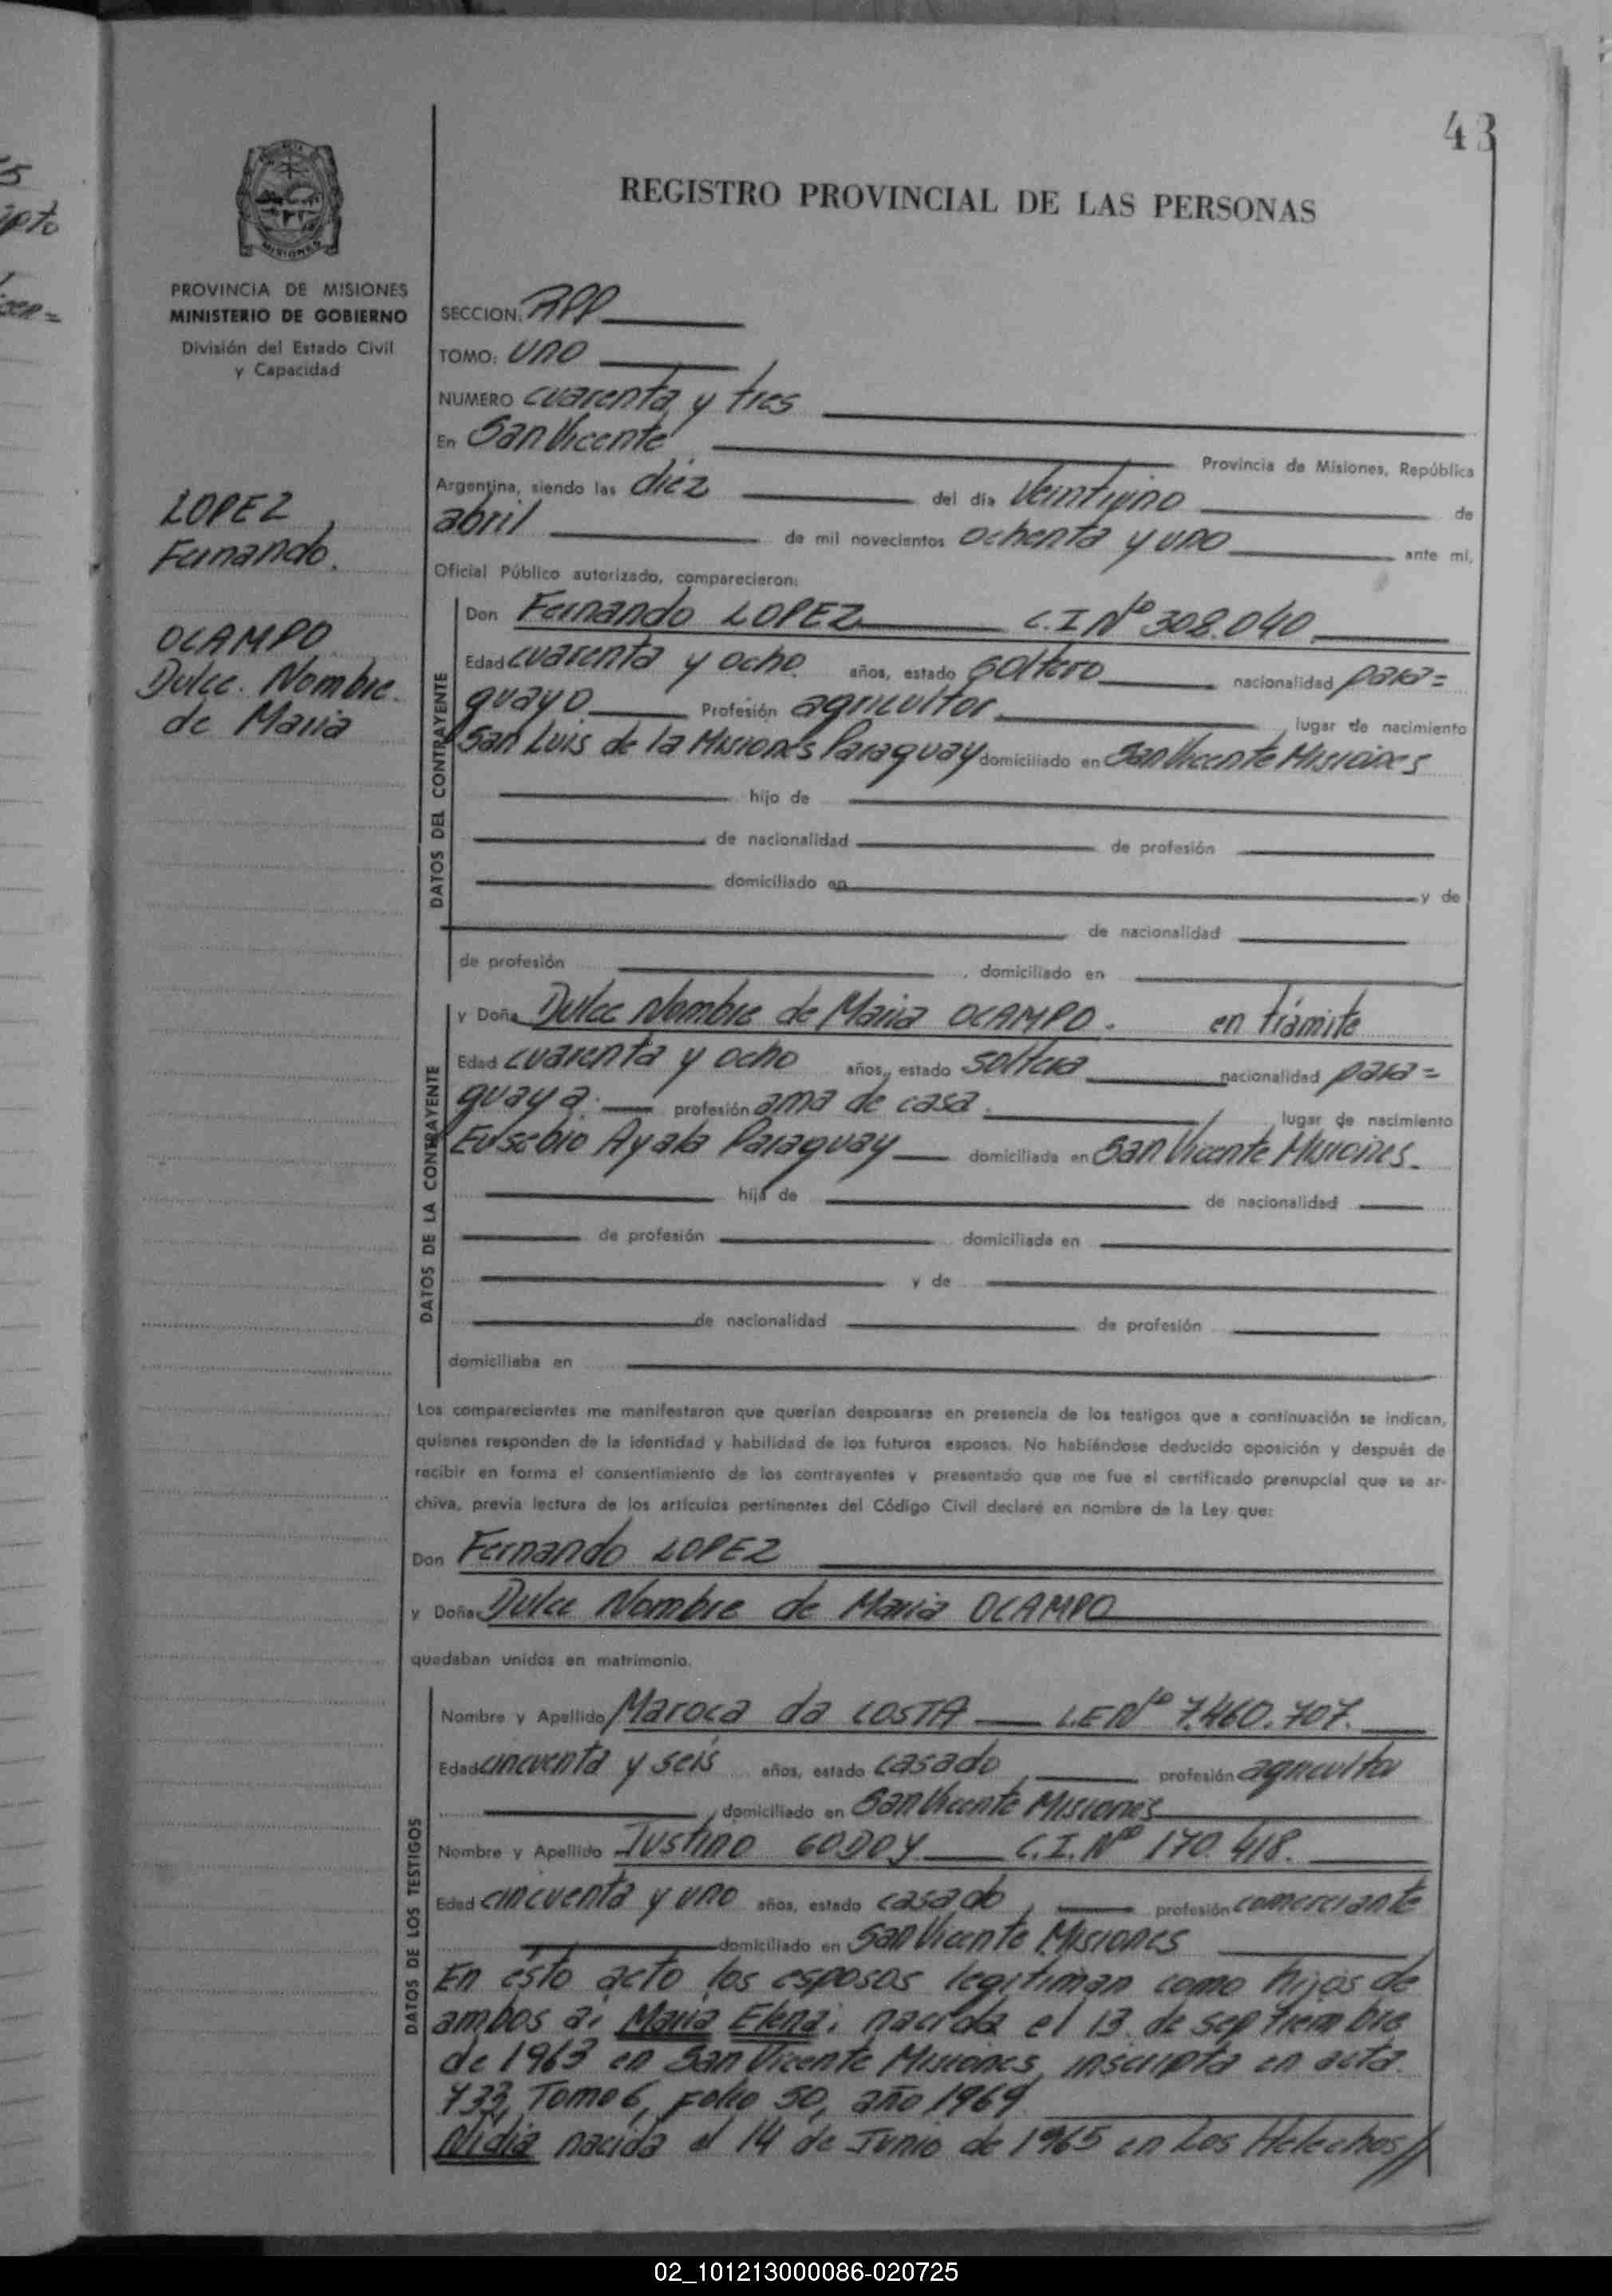 43
REGISTRO PROVINCIAL DE LAS PERSONAS
MISIONES
PROVINCIA DE MISIONES
MINISTERIO DE GOBIERNO
División del Estado Civil
y Capacidad
LOPEZ
Fernando.
OCAMPO
Dulce Nombre
de Maria
SECCION:
TOMO: uno
NUMERO cuarenta y tres
En San Vicente Provincia de Misiones, República
Argentina, siendo las diez del día Veintiuno de
abril de mil novecientos ochenta y uno ante mí,
Oficial Público autorizado, comparecieron:
DATOS DEL CONTRAYENTE
Don Fernando LOPEZ C.I Nº 308.040
Edad cuarenta y ocho años, estado soltero nacionalidad para=
guayo Profesión agricultor lugar de nacimiento
San Luis de la Misiones Paraguay domiciliado en San Vicente Misiones
hijo de
de nacionalidad de profesión
domiciliado en y de
de nacionalidad
de profesión , domiciliado en
DATOS DE LA CONTRAYENTE
y Doña Dulce Nombre de Maria OCAMPO. en trámite
Edad cuarenta y ocho años, estado soltera nacionalidad para=
guaya. profesión ama de casa lugar de nacimiento
Eusebio Ayala Paraguay domiciliada en San Vicente Misiones.
hija de de nacionalidad
de profesión domiciliada en
y de
de nacionalidad de profesión
domiciliaba en
Los comparecientes me manifestaron que querían desposarse en presencia de los testigos que a continuación se indican,
quienes responden de la identidad y habilidad de los futuros esposos. No habiéndose deducido oposición y después de
recibir en forma el consentimiento de los contrayentes y presentado que me fue el certificado prenupcial que se ar-
chiva, previa lectura de los artículos pertinentes del Código Civil declaré en nombre de la Ley que:
Don Fernando LOPEZ
y Doña Dulce Nombre de Maria OCAMPO
quedaban unidos en matrimonio.
DATOS DE LOS TESTIGOS
Nombre y Apellido Maroca da COSTA L.E Nº 7.460.707.
Edad cincuenta y seis años, estado casado profesión agricultor
domiciliado en San Vicente Misiones
Nombre y Apellido Justino GODOY C.I. Nº 170.418.
Edad cincuenta y uno años, estado casado, profesión comerciante
domiciliado en San Vicente Misiones
En esto acto los esposos legitiman como hijos de
ambos a: Maria Elena: nacida el 13 de septiembre
de 1963 en San Vicente Misiones, inscripta en acta
733, Tomo 6, Folio 50, año 1969
Nidia nacida el 14 de Junio de 1965 en Los Helechos//
02_101213000086-020725